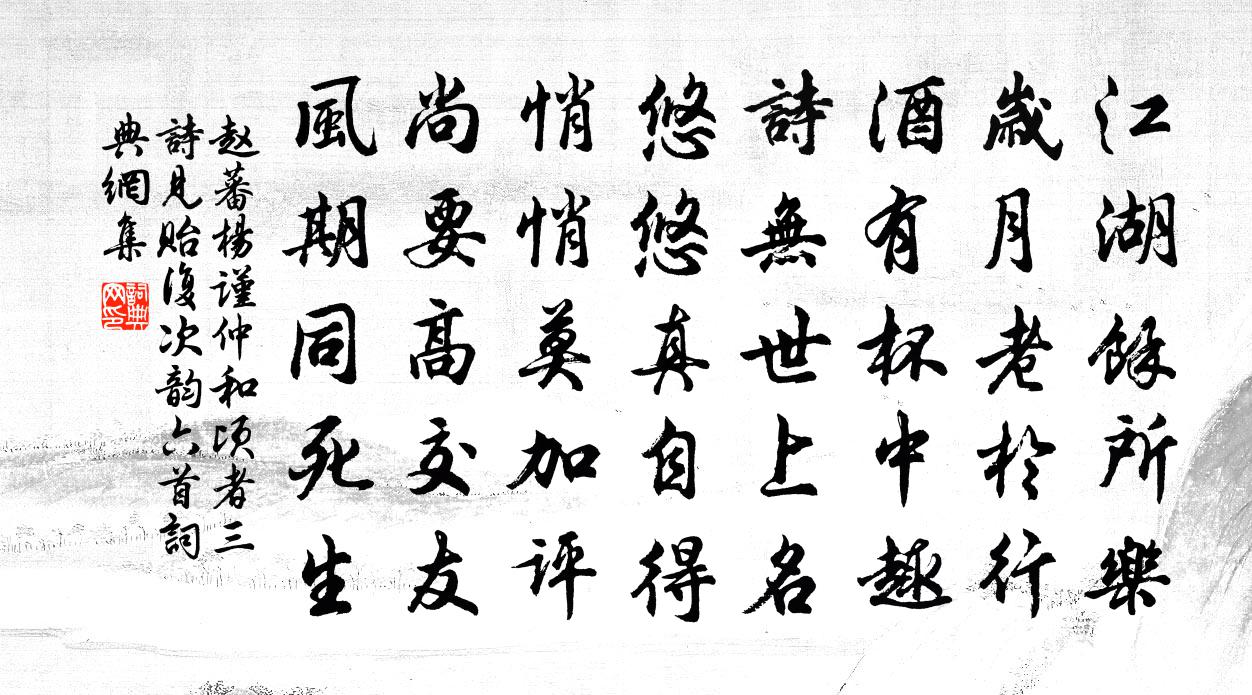 江湖餘所樂
歲月老於行
酒有杯中趣
詩無世上名
悠悠真自得
悄悄莫加评
尚要高交友
風期同死生
赵蕃楊謹仲和頃者三
詩見貽復次韵六首詞
典網集
詞典网印